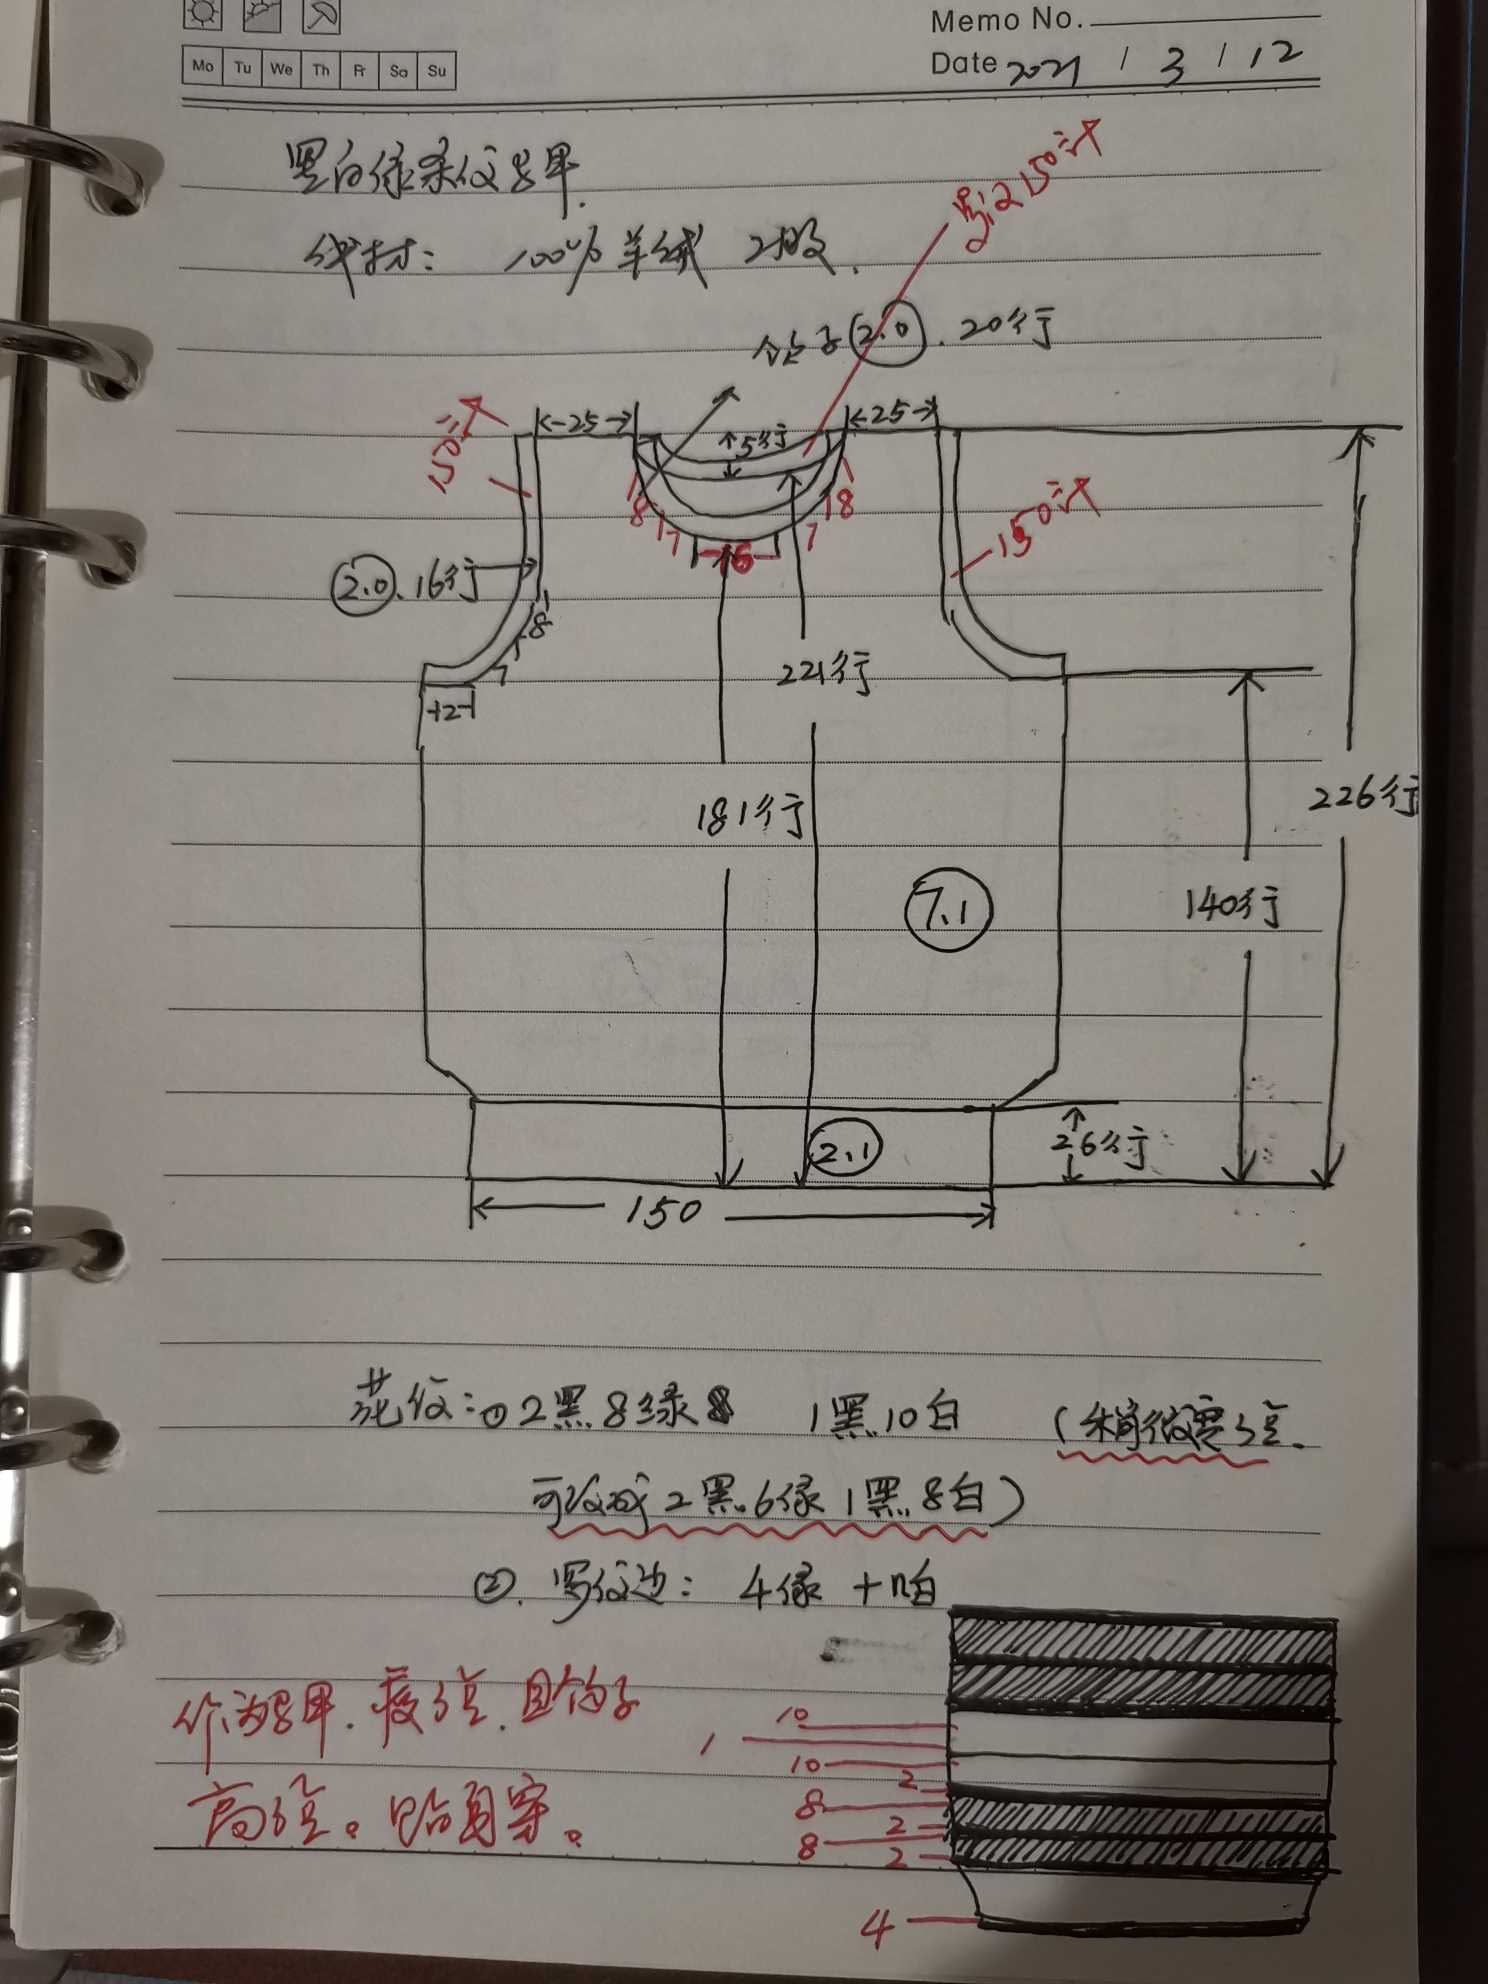 Memo No.
Mo Tu We Th Fr Sa Su
Date 2021 / 3 / 12
黑白绿条纹马甲.
线材: 100% 羊绒 2股.
150针
领子 2.0. 20行
150针
25
5行
25
8
7
16
7
18
150针
2.0. 16行
8
7
12
221行
181行
226行
7.1
140行
2.1
26行
150
花纹: ① 2黑8绿 1黑10白 (稍微宽了点.
可改成2黑6绿1黑8白)
②. 罗纹边: 4绿 + n白
作为马甲. 瘦了点. 且领子
高了点。
10
1
10
2
8
2
8
2
4